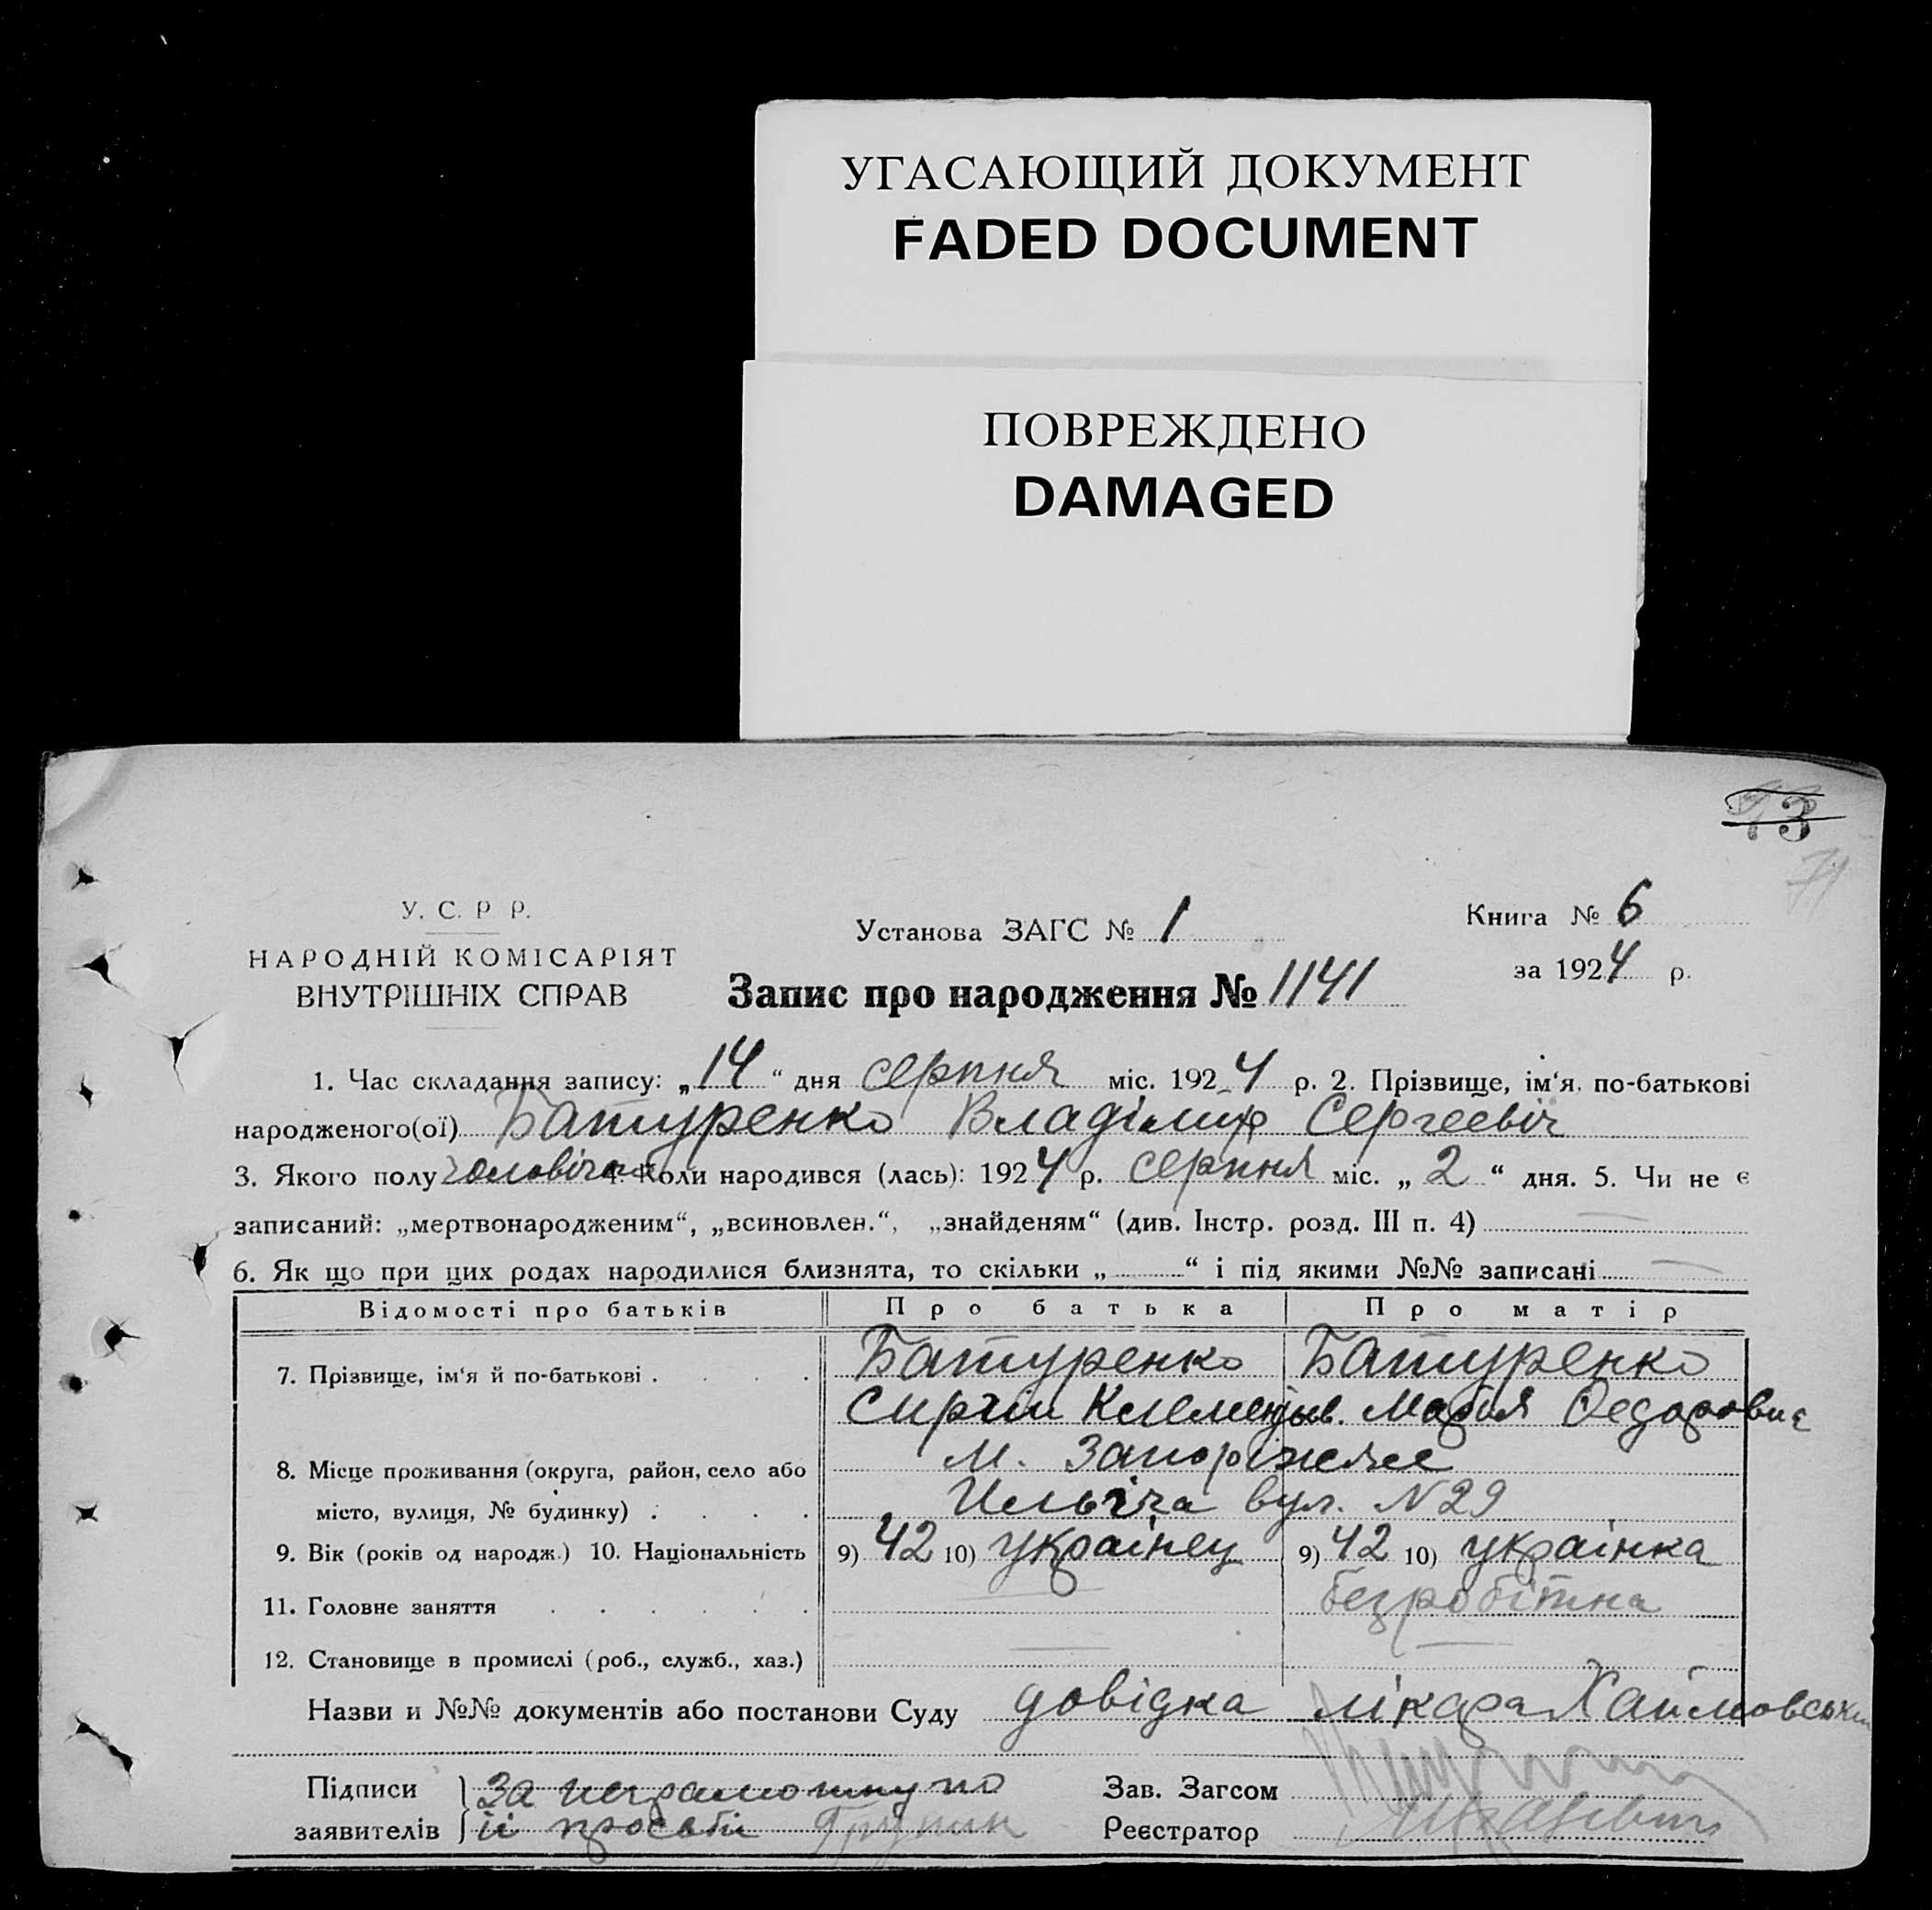 УГАСАЮЩИЙ ДОКУМЕНТ
FADED DOCUMENT
ПОВРЕЖДЕНО
DAMAGED
73
71
У. С. Р Р.
НАРОДНІЙ КОМІСАРІЯТ
ВНУТРІШНІХ СПРАВ
Установа ЗАГС № 1
Книга № 6
за 1924 р.
Запис про народження № 1141
1. Час складання запису: „14“ дня серпня міс. 1924 р. 2. Прізвище, ім‘я, по-батькові
народженого(ої) Батуренко Владімир Сергеевіч
3. Якого полу чоловічого 4. Коли народився (лась): 1924 р. серпня міс. „2“ дня. 5. Чи не є
записаний: „мертвонародженим“, „всиновлен.“, „знайденям“ (див. Інстр. розд. III п. 4)
6. Як що при цих родах народилися близнята, то скільки „ “ і під якими №№ записані
Відомості про батьків Про батька Про матір
7. Прізвище, ім‘я й по-батькові . . . . Батуренко Батуренко
Сиргій Клементьев. Марія Федоровна
8. Місце проживання (округа, район, село або м. Запоріжжє
місто, вулиця, № будинку) . . . . Ильіча вул. N 29
9. Вік (років од народж.) 10. Національність 9) 42 10) українец 9) 42 10) українка
11. Головне заняття . . . . . . безробітна
12. Становище в промислі (роб., служб., хаз.)
Назви и №№ документів або постанови Суду довідка лікара Хаймовськ
Підписи За неграмотну по Зав. Загсом
заявителів її просьбі Реєстратор